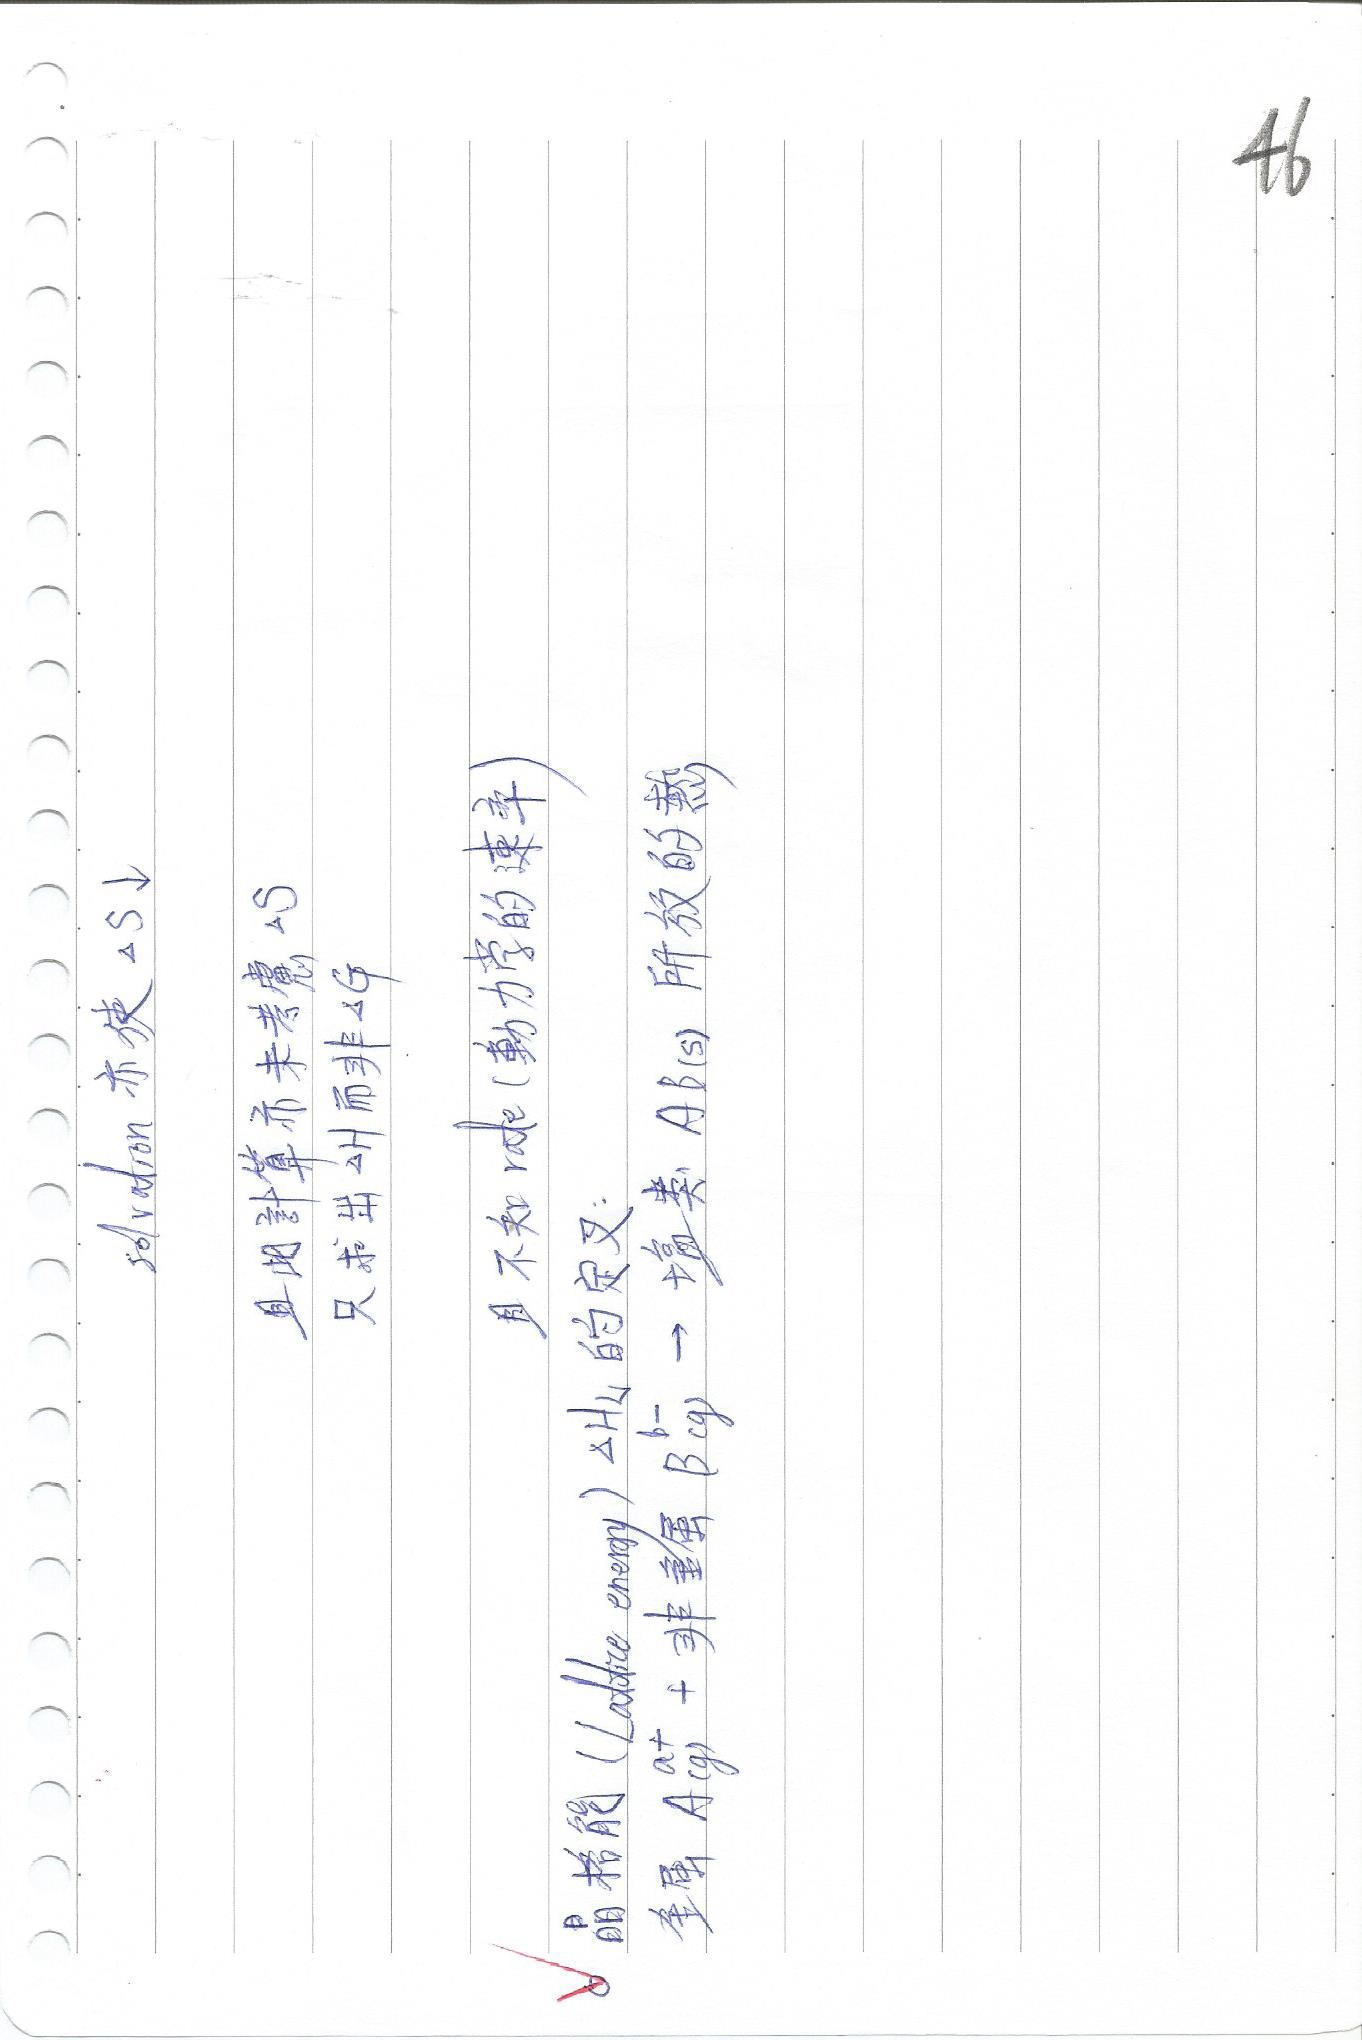 46
solvation 亦使 ΔS↓
且此計算亦未考慮 ΔS
只求出 ΔH 而非 ΔG
且不知 rate (動力学的速率)
晶格能 (Lattice energy) ΔHL 的定义:
金属 A(g)ᵃ⁺ + 非金属 B(g)ᵇ⁻ → 塩类 AB(s) 所放的熱